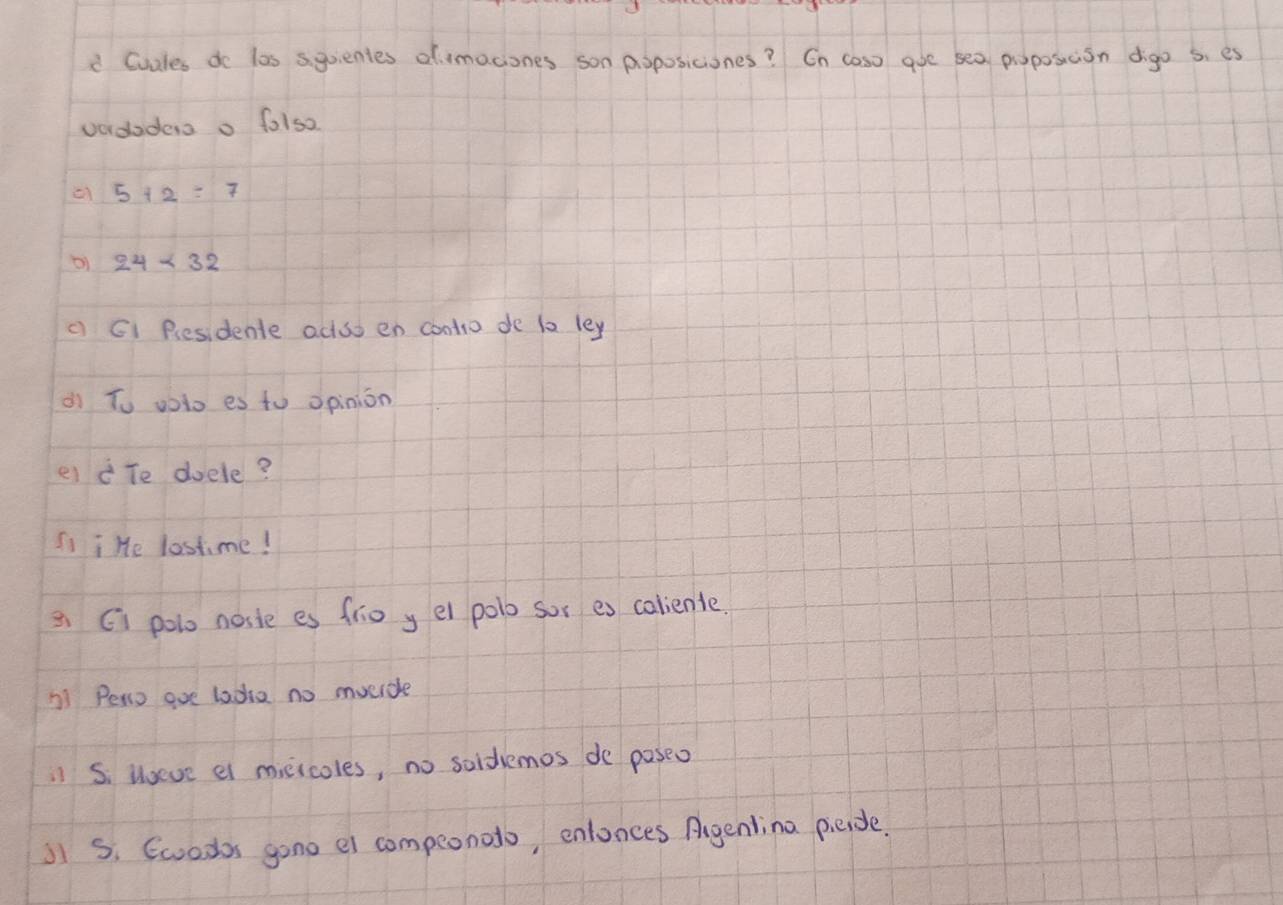 ¿Cuales de las siguientes afirmaciones son proposiciones? En caso que sea proposición diga si es
verdadera o falsa.
a) 5 + 2 = 7
b) 24 < 32
c) El Presidente actuo en contra de la ley
d) Tu voto es tu opinión
e) ¿Te duele?
f) ¡Me lastime!
g) El polo norte es frio y el polo sur es caliente.
h) Perro que ladra no muerde
i) Si llueve el miércoles, no saldremos de paseo
j) Si Ecuador gana el campeonato, entonces Argentina pierde.